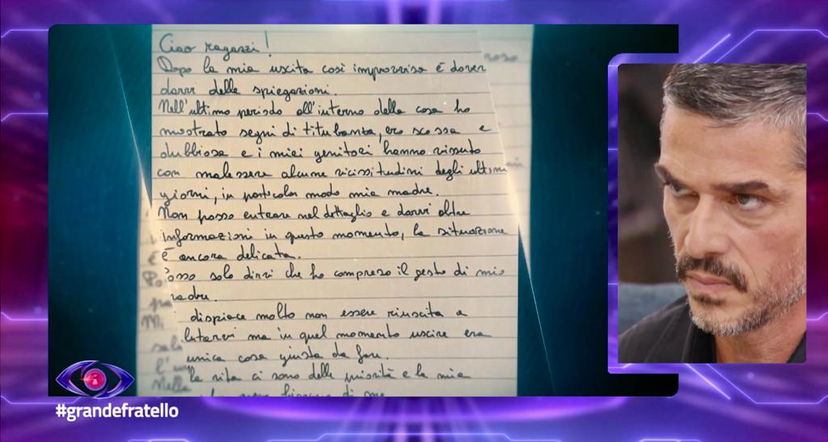 Ciao ragazzi!
Dopo la mia uscita così improvvisa è dover
darvi delle spiegazioni.
Nell'ultimo periodo all'interno della casa ho
mostrato segni di titubanza, ero scossa e
dubbiosa e i miei genitori hanno vissuto
con malessere alcune vicissitudini degli ultimi
giorni, in particolar modo mia madre.
Non posso entrare nel dettaglio e darvi oltre
informazioni in questo momento, la situazione
è ancora delicata.
Posso solo dirvi che ho compreso il gesto di mio
padre.
dispiace molto non essere riuscita a
lutarvi ma in quel momento uscire era
unica cosa giusta da fare.
la vita ci sono delle priorità e la mia
#grandefratello